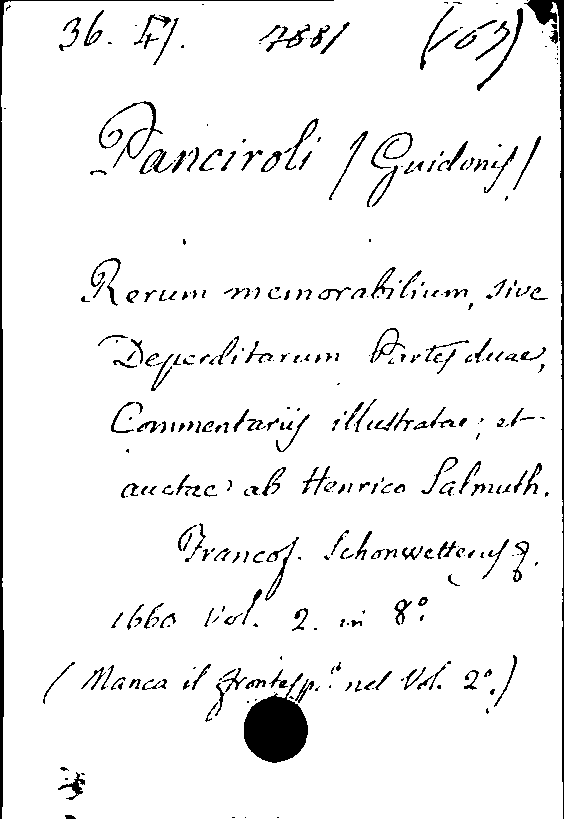 36. 7881 (163)
Panciroli / Guidonis /
Rerum memorabilium, sive
Deperditarum Partes duae,
Commentariis illustratae; et
auctae ab Henrico Salmuth.
Francof. Schonwetterus
1660 Vol. 2. in 8.º
(Manca il frontesp.º nel Vol. 2º.)